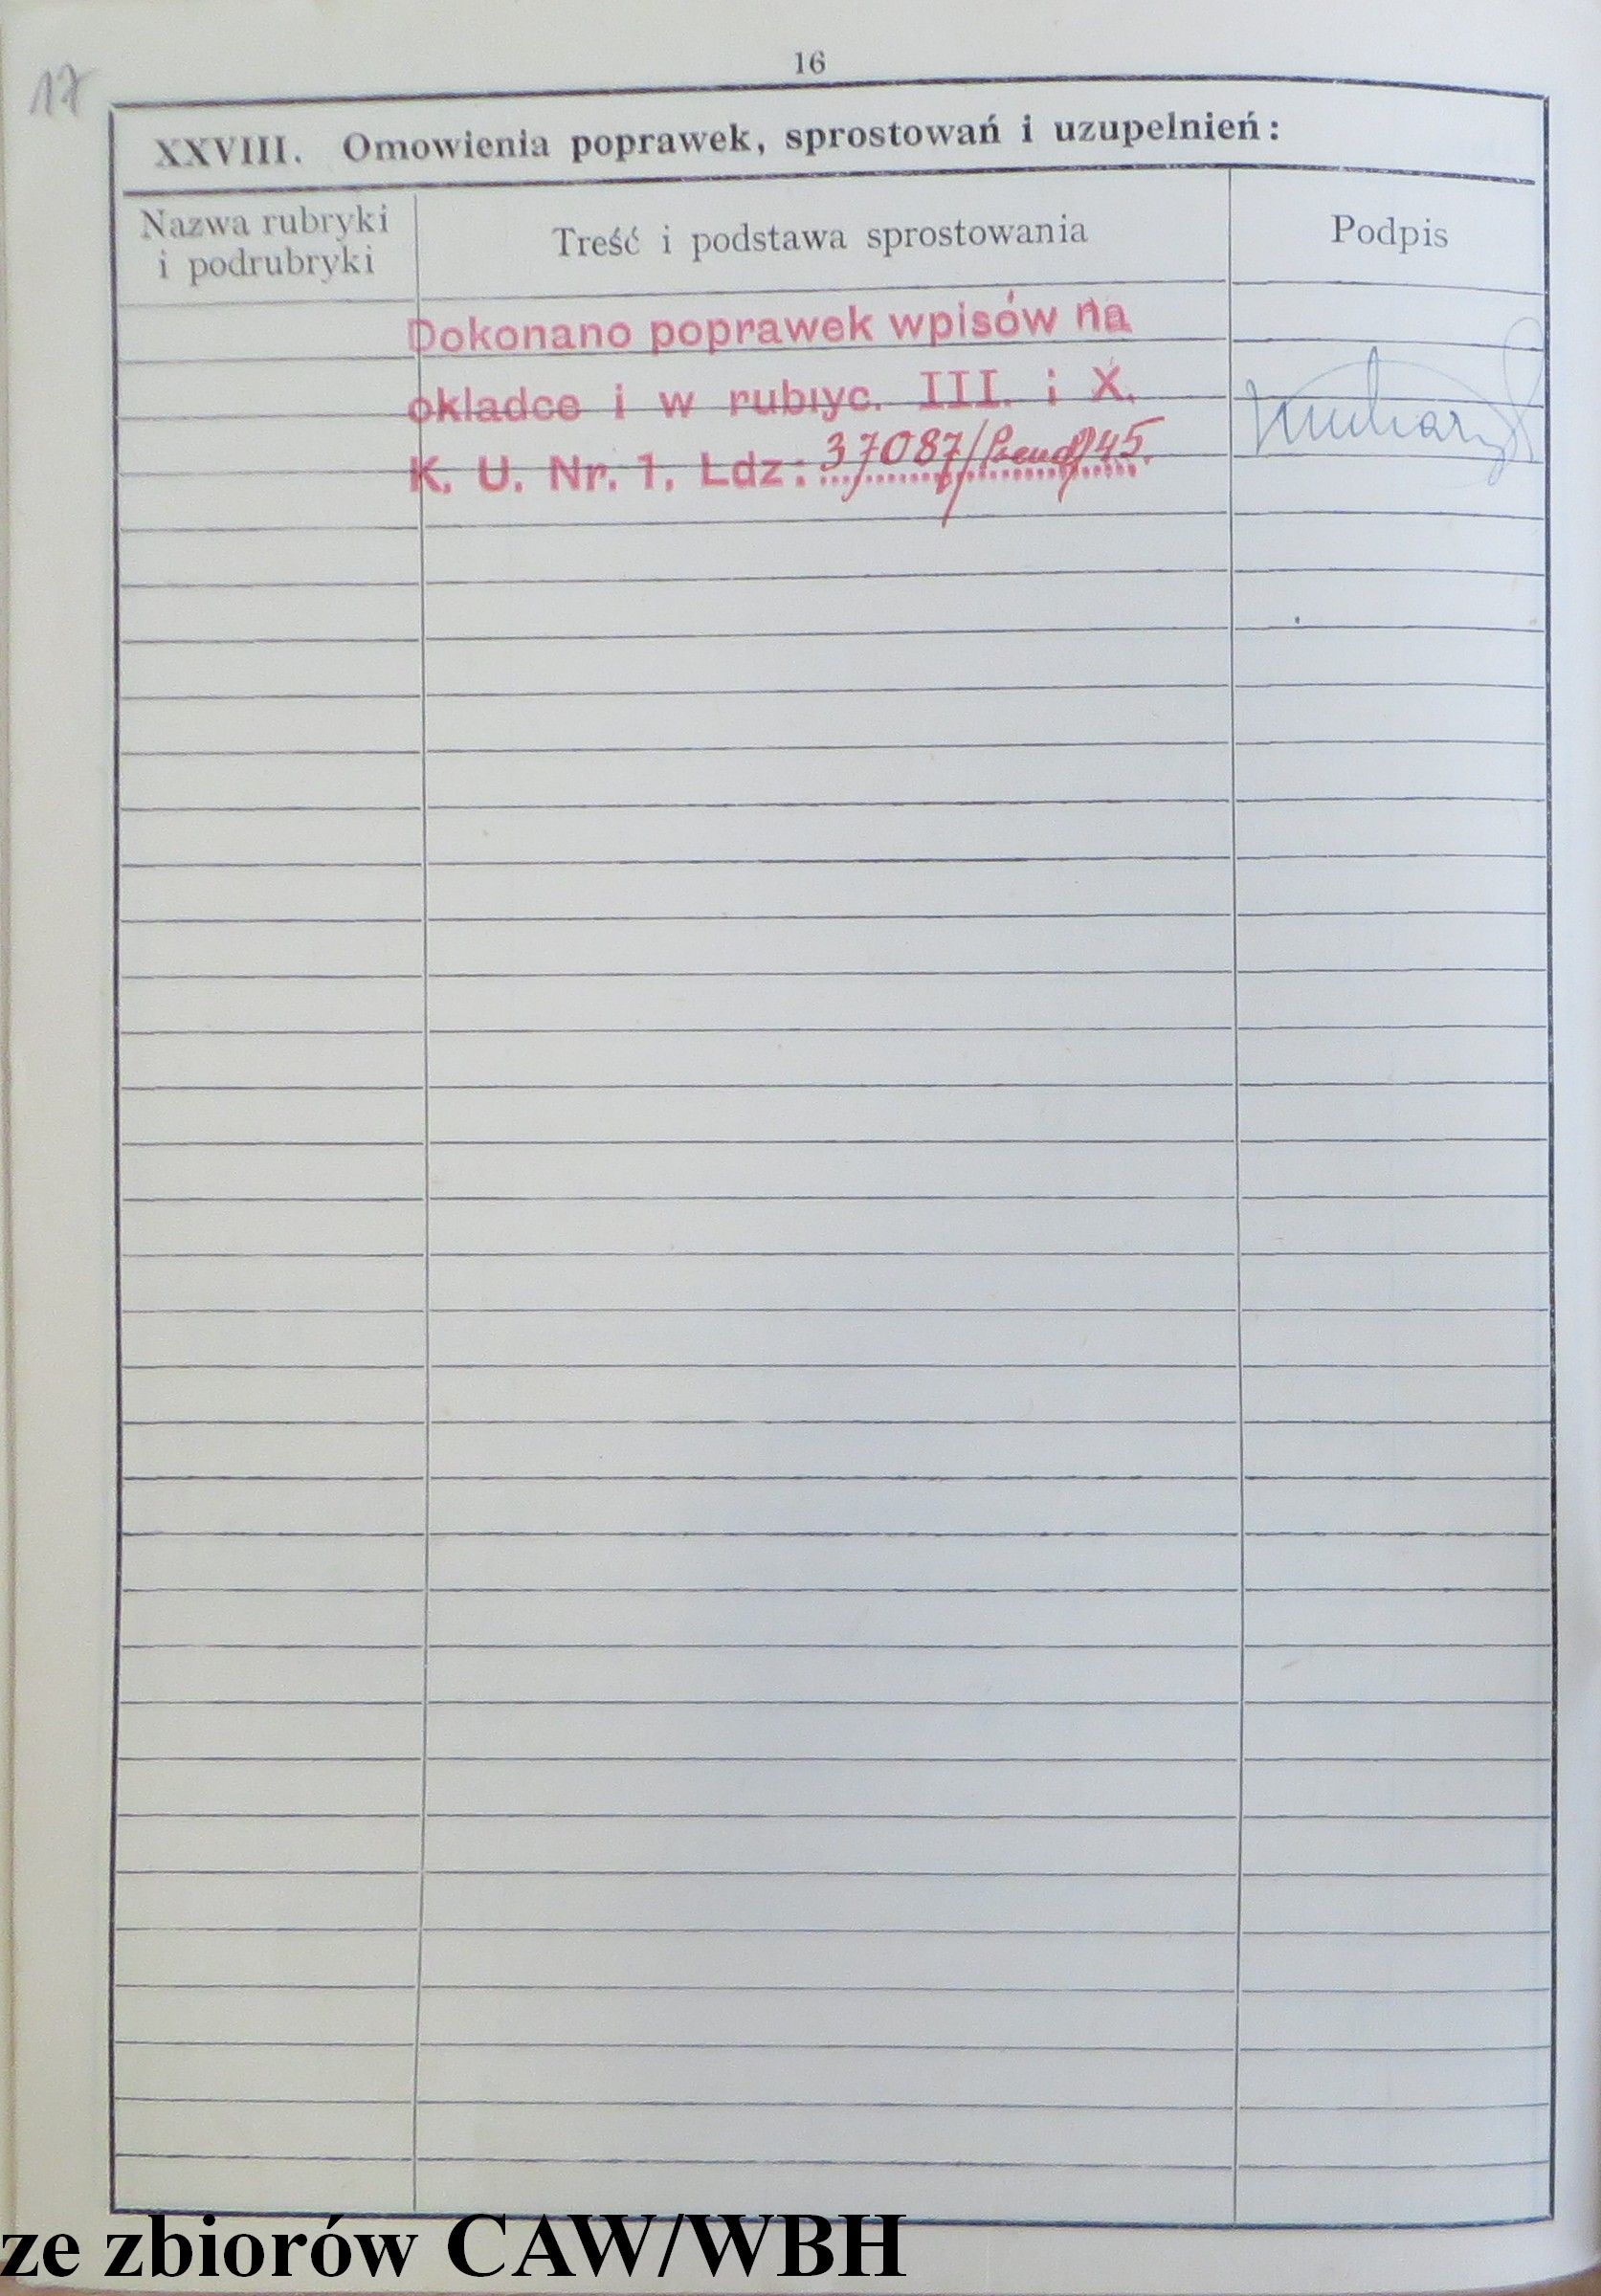 17
16
XXVIII. Omowienia poprawek, sprostowań i uzupelnień:
Nazwa rubryki
i podrubryki
Treść i podstawa sprostowania
Podpis
Dokonano poprawek wpisów na
okladce i w rubryc. III. i X.
K. U. Nr. 1. Ldz: 37087/ /45.
ze zbiorów CAW/WBH